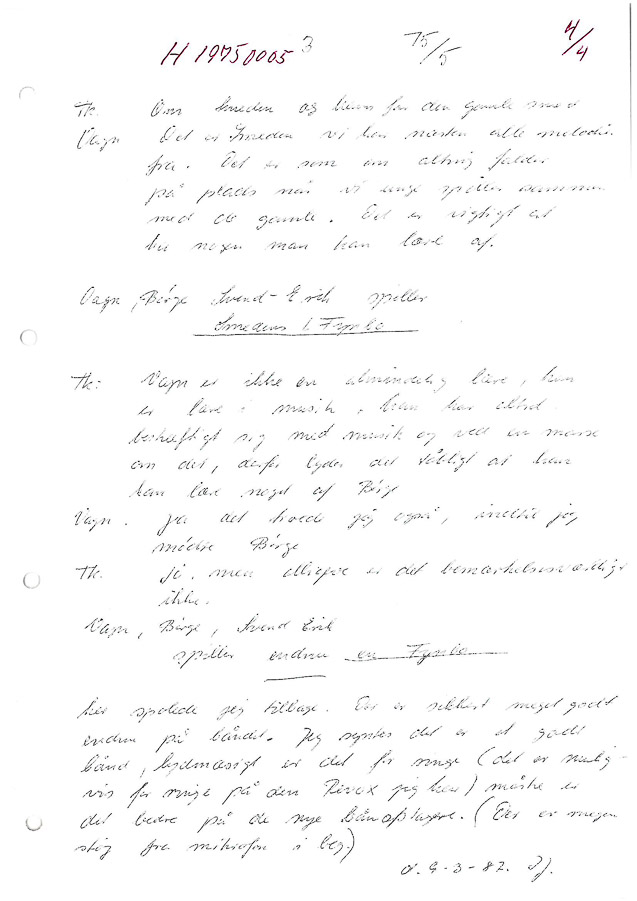 H 19750005 3 75/5 4/4
Th. Om Smeden og hans far den gamle smed
Vagn Det er Smeden vi har næsten alle melodier
fra. Det er som om alting falder
på plads når vi unge spiller sammen
med de gamle. Det er vigtigt at
have nogen man kan lære af.
Vagn, Börge Svend-Erik spiller
Smedens 1. Fynbo
Th: Vagn er ikke en almindelig lærer, han
er lærer i musik, han har altid
beskæftigt sig med musik og ved en masse
om det, derfor lyder det tåbligt at han
kan lære noget af Börge
Vagn. Ja det troede jeg også, indtil jeg
mødte Börge
Th. Jo. men alligevel er det bemærkelsesværdigt
ikke.
Vagn, Börge, Svend Erik
spiller endnu en Fynbo
her spolede jeg tilbage. Der er sikkert meget godt
endnu på båndet. Jeg syntes det er et godt
bånd, lydmæsigt er det for ringe (det er mulig-
vis for ringe på den Revox jeg har) måske er
det bedre på de nye båndoptagere. (Der er megen
støj fra mikrofon i beg.)
d. 9-3-82.